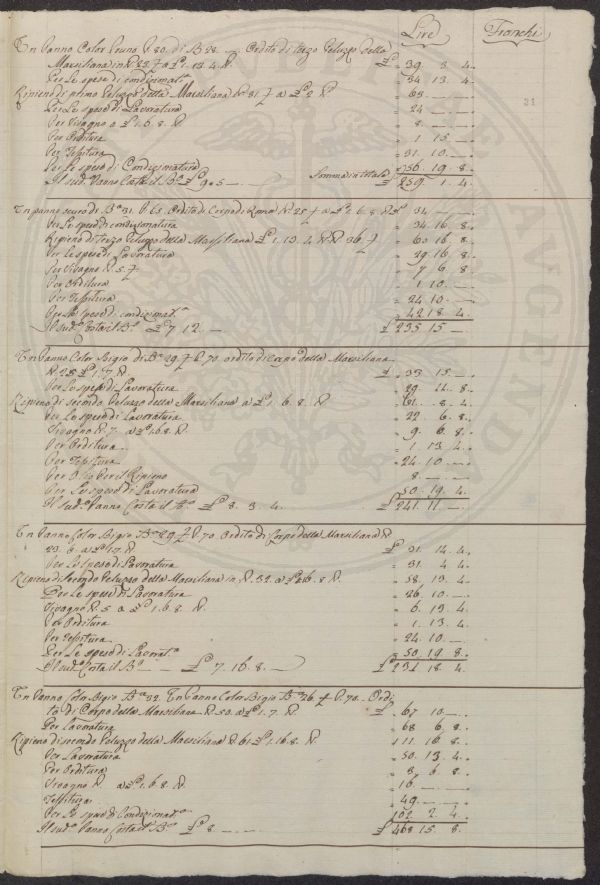 Lire Franchi
Un Panno Color Bruno P. 80. di B. 28. Ordito di terzo Peluzzo della
Marsiliana in 23. a £ 1. 13. 4. £ 39. 3. 4.
Per Le spese di condizionat.a 34 13. 4.
Ripieno di primo Peluzzo della Marsiliana 31. a £ 2 63. —
Per Le spese di Lavoratura 24 —
Per Vivagno a £ 1. 6. 8. 8. —
Per Orditura 1 15. —
Per Tessitura 31. 10. —
Per Le spese di Condizionatura 56. 19. 8.
Il sud.o Panno Costa il B.o £ 9. 5 — Somma in totale £ 259. 1. 4.
31
Un panno scuro di B.a 31. P. 65. Ordito di Corpo di Roma 25 a £ 1. 6. 8. £ 34. —
Per Le spese di condizionatura 34. 16. 8.
Ripieno di terzo Peluzzo della Marsiliana £ 1. 13. 4. 36. 60 16. 8.
Per Le spese di Lavoratura 29 16. 8.
Per Vivagno 5 7 6. 8.
Per Orditura 1 10. —
Per Tessitura 24 10. —
Per Le spese di condizionat.a 42 18. 4.
Il sud.o Costa il B.o £ 7. 12. — £ 235. 15 —
Un Panno Color Bigio di B.a 29. P. 70. ordito di Corpo della Marsiliana
25 £ 1. 7. £ 33 15. —
Per Le spese di Lavoratura 29 14. 8.
Ripieno di secondo Peluzzo della Marsiliana a £ 1. 6. 8. 61. 8. 4.
Per Le spese di Lavoratura 22 6. 8.
Vivagno 7. a £ 1. 6. 8. 9. 6. 8.
Per Orditura 1. 13. 4.
Per Tessitura 24. 10. —
Per Olio Per il Ripieno 8. —
Per Le spese di Lavoratura 50. 19. 4.
Il sud.o Panno Costa il B.o £ 8. 3. 4. £ 241. 11 —
Un Panno Color Bigio B.a 29 P. 70 Ordito di Corpo della Marsiliana
23. 6. a £ 1. 7. £ 31. 14. 4.
Per Le spese di Lavoratura 31. 4 4.
Ripieno di secondo Peluzzo della Marsiliana in 32. a £ 1. 6. 8. 58, 13. 4.
Per Le spese di Lavoratura 26. 10. —
Vivagno 5 a £ 1. 6. 8. 6. 13. 4.
Per Orditura 1. 13. 4.
Per Tessitura 24. 10. —
Per Le spese di Lavorat.a 50. 19. 8.
Il sud.o Costa il B.o — £ 7. 16. 8. — £ 231 18. 4.
Un Panno Color Bigio B.a 32. Un Panno Color Bigio B.a 26. P. 70. Ordi
to di Corpo della Marsiliana 50. a £ 1. 7. £ 67 10. —
Per Lavoratura 68 6. 8.
Ripieno di secondo Peluzzo della Marsiliana 61. £ 1. 16. 8. 111. 16. 8.
Per Lavoratura 50. 13. 4.
Per Orditura 3. 6. 8.
Vivagno a £ 1. 6. 8. 16. —
Tessitura 49. —
Per Le spese di Condizionat.a 102. 2. 4.
Il sud.o Panno Costa il B.o £ 8. — £ 468. 15. 8.